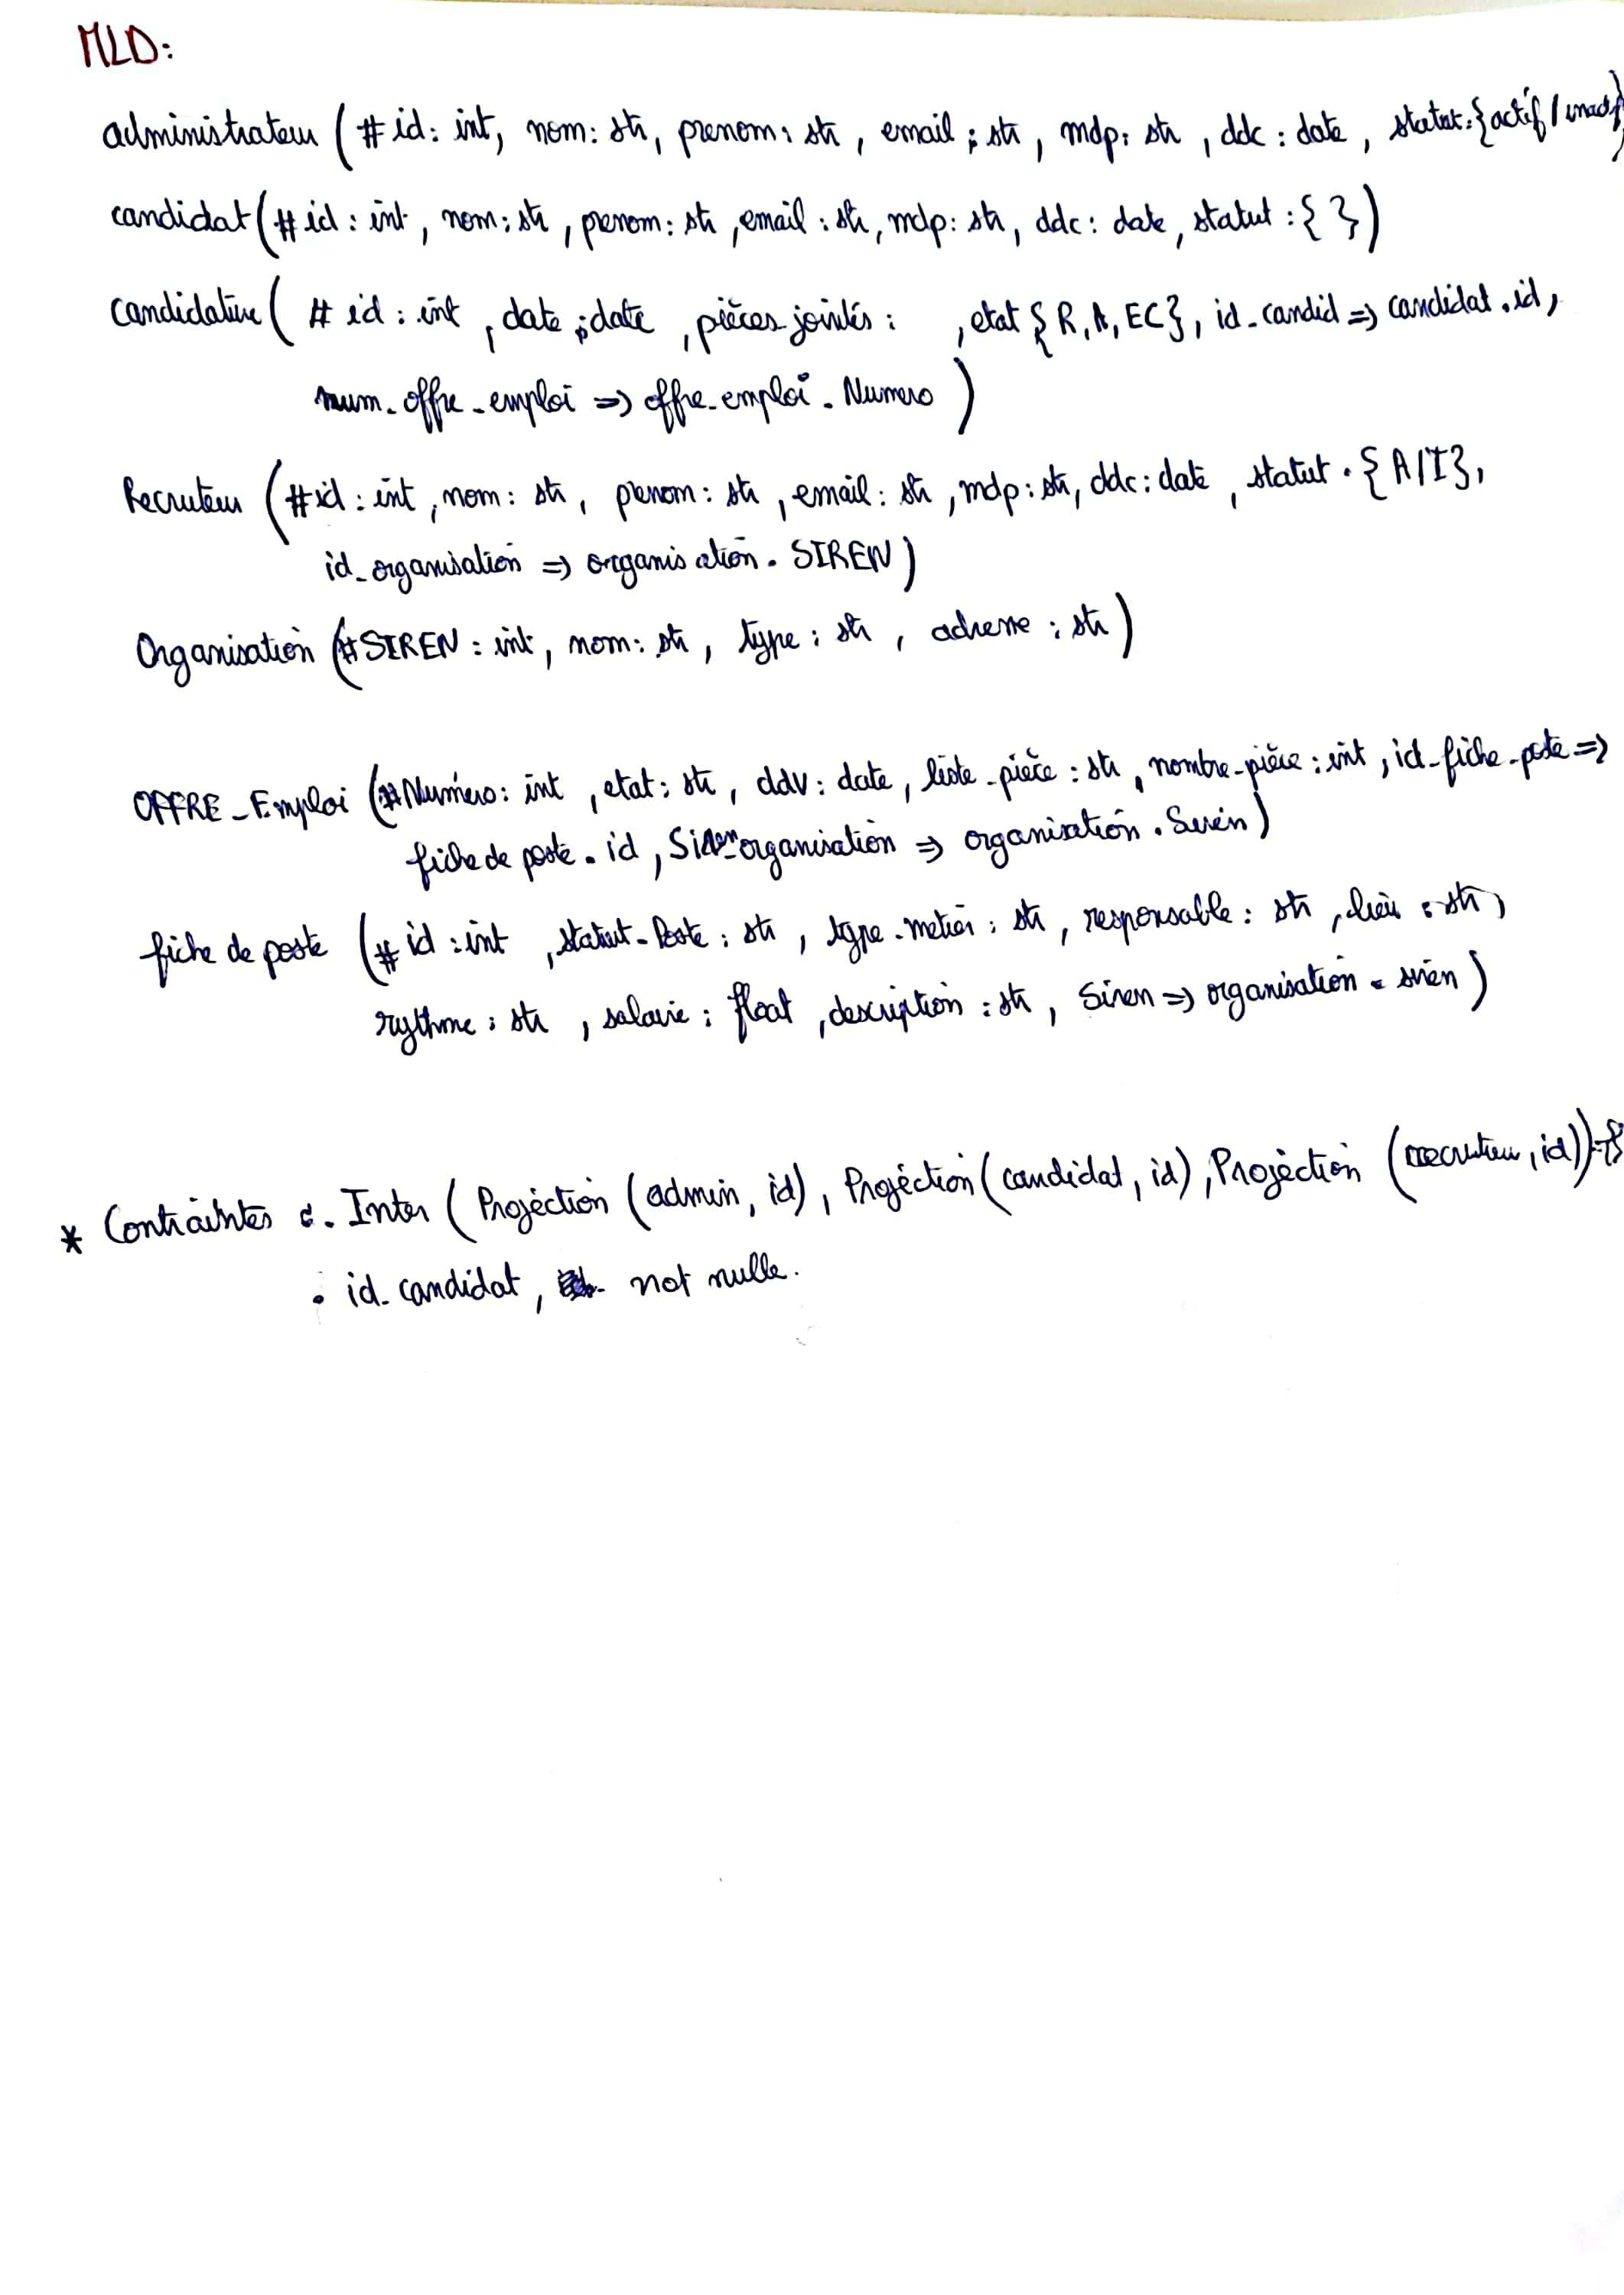 MLD:
administrateur (#id: int, nom: str, prenom: str, email: str, mdp: str, ddc: date, statut: {actif / inactif}
candidat (#id: int, nom: str, prenom: str, email: str, mdp: str, ddc: date, statut: { })
candidature ( #id: int, date: date, pièces-jointes: , etat {R, A, EC}, id_candid => candidat.id,
num_offre_emploi => offre_emploi.Numero )
Recruteur (#id: int, nom: str, prenom: str, email: str, mdp: str, ddc: date, statut. {A/I},
id_organisation => organisation.SIREN)
Organisation (#SIREN: int, nom: str, type: str, adresse: str)
OFFRE_Emploi (#Numéro: int, etat: str, ddv: date, liste_pièce: str, nombre_pièce: int, id_fiche_poste =>
fiche de poste.id, Siren_organisation => organisation.Siren)
fiche de poste (#id: int, statut_Poste: str, type_metier: str, responsable: str, lieu: str,
rythme: str, salaire: float, description: str, Siren => organisation.siren)
* Contraintes . Inter (Projéction (admin, id), Projéction (candidat, id), Projéction (recruteur, id))={
. id_candidat, not nulle.